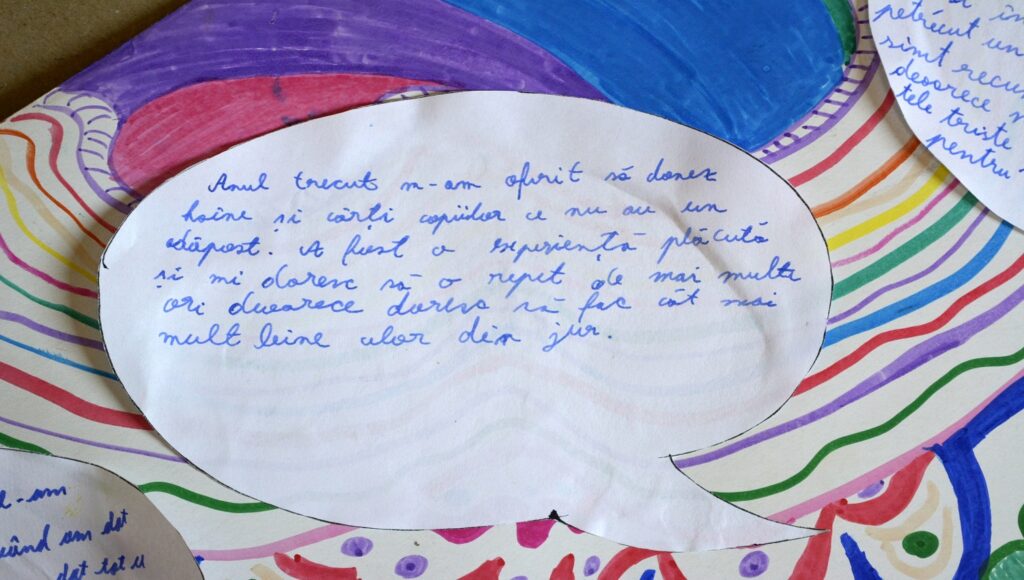 Anul trecut m-am oferit să donez
haine și cărți copiilor ce nu au un
adăpost. A fost o experiență plăcută
și mi doresc să o repet de mai multe
ori deoarece doresc să fac cât mai
mult bine celor din jur.
petrecut un
simt recu
deoarece
tele triste
pentru
-am
când am dat
dat tot